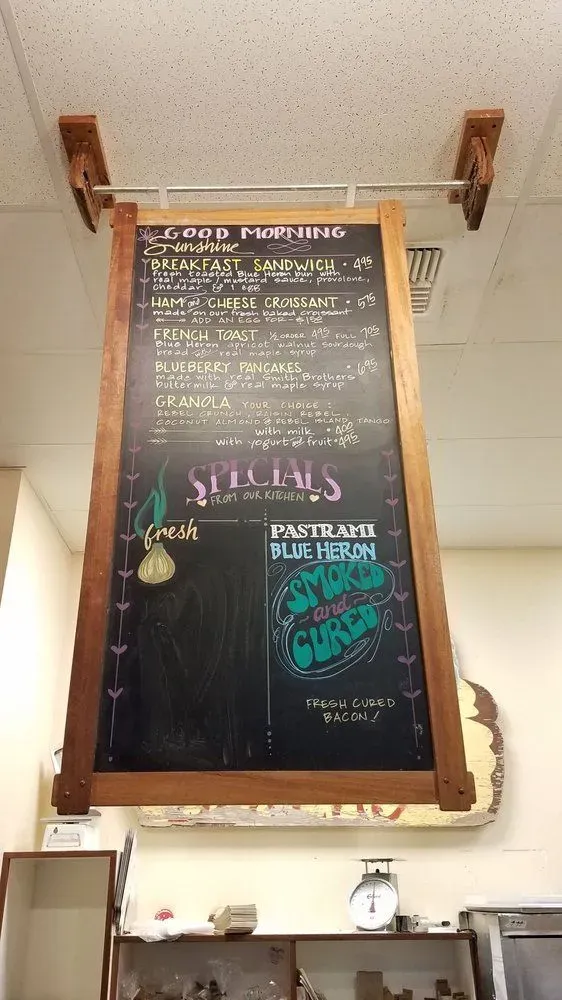 GOOD MORNING
Sunshine
BREAKFAST SANDWICH • 4.95
fresh toasted Blue Heron bun with
real maple / mustard sauce, provolone,
cheddar, & 1 egg
HAM and CHEESE CROISSANT • 5.75
made on our fresh baked croissant
ADD AN EGG FOR - $1.50
FRENCH TOAST ½ ORDER 4.95 FULL 7.05
Blue Heron apricot walnut sourdough
bread with real maple syrup
BLUEBERRY PANCAKES • 6.95
made with real Smith Brothers
buttermilk & real maple syrup
GRANOLA YOUR CHOICE :
REBEL CRUNCH, RAISIN REBEL,
COCONUT ALMOND & REBEL ISLAND TANGO
with milk • 4.00
with yogurt and fruit • 4.95
SPECIALS
FROM OUR KITCHEN
fresh
PASTRAMI
BLUE HERON
SMOKED
~and~
CURED
FRESH CURED
BACON!